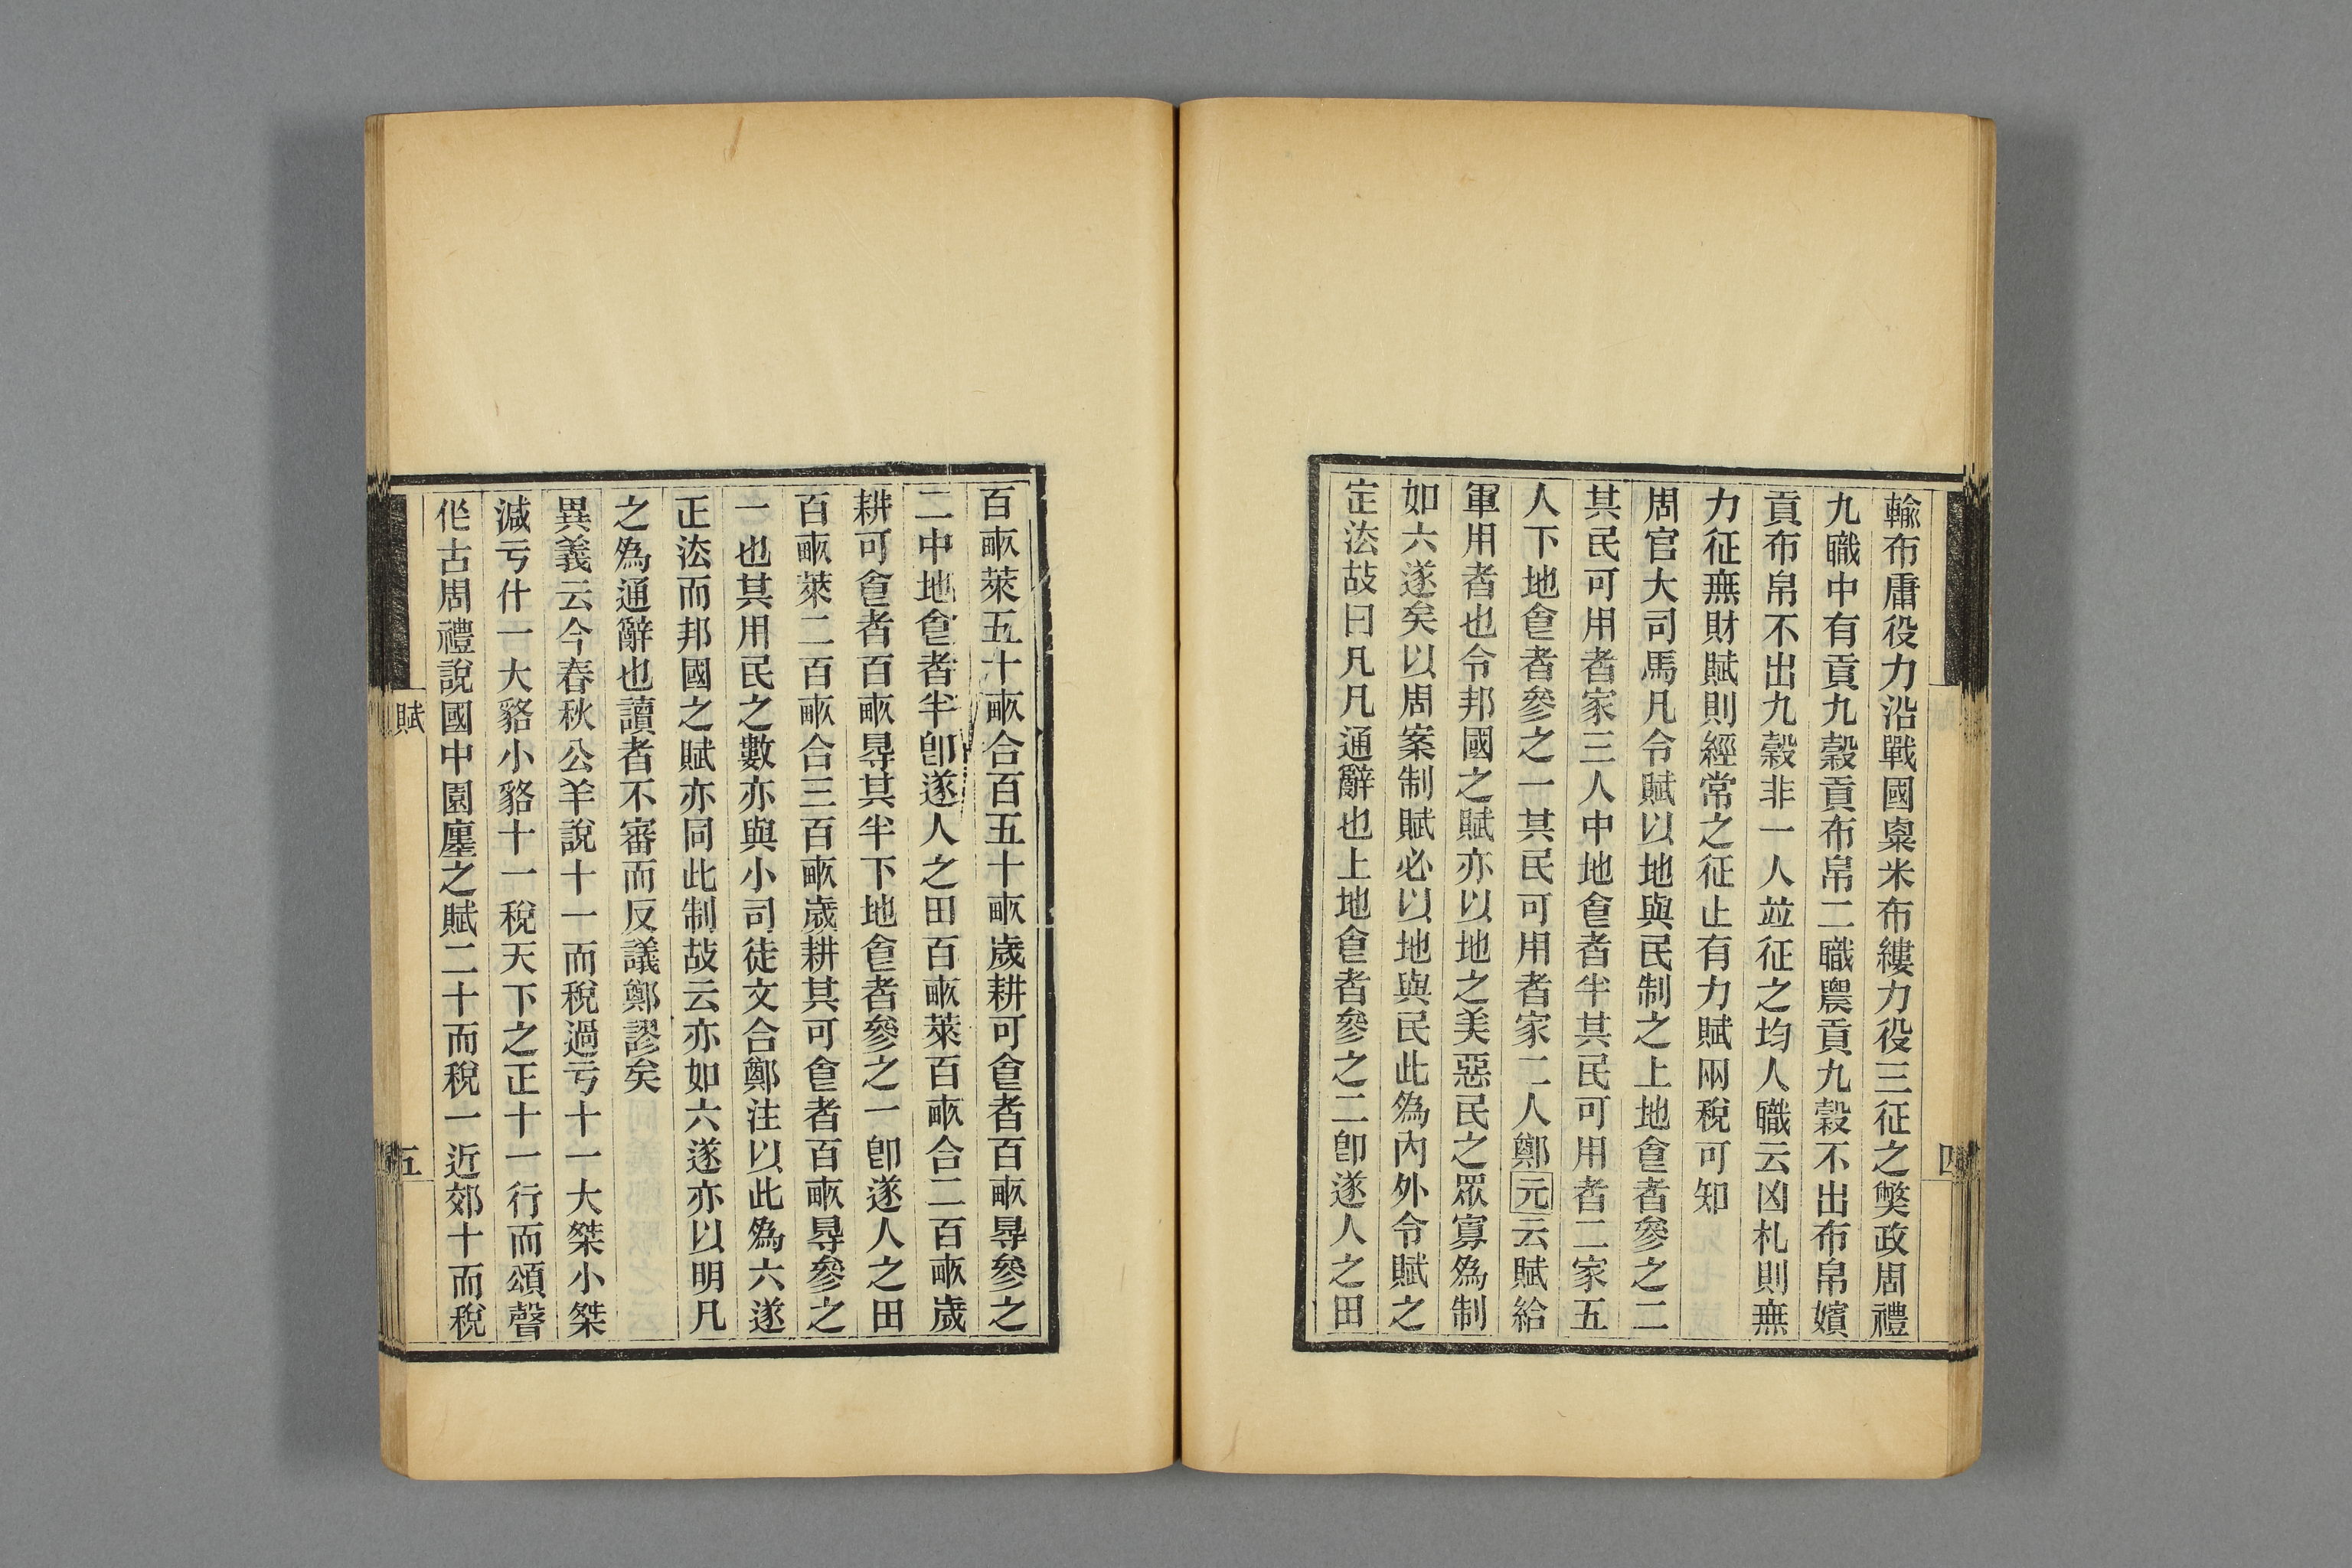 輸布庸役力沿戰國粟米布縷力役三征之獘政周禮
九職中有貢九榖貢布帛二職農貢九榖不出布帛嬪
貢布帛不出九榖非一人竝征之均人職云凶札則無
力征無財賦則經常之征止有力賦兩稅可知
周官大司馬凡令賦以地與民制之上地㑹者參之二
其民可用者家三人中地㑹者半其民可用者二家五
人下地㑹者參之一其民可用者家二人鄭元云賦給
軍用者也令邦國之賦亦以地之美惡民之眾寡爲制
如六遂矣以周案制賦必以地與民此爲內外令賦之
定法故曰凡凡通辭也上地㑹者參之二卽遂人之田
百畞萊五十畞合百五十畞歲耕可㑹者百畞㝵參之
二中地㑹者半卽遂人之田百畞萊百畞合二百畞歲
耕可㑹者百畞㝵其半下地㑹者參之一卽遂人之田
百畞萊二百畞合三百畞歲耕其可㑹者百畞㝵參之
一也其用民之數亦與小司徒文合鄭注以此爲六遂
正法而邦國之賦亦同此制故云亦如六遂亦以明凡
之爲通辭也讀者不審而反議鄭謬矣
異義云今春秋公羊說十一而稅過亏十一大桀小桀
減亏什一大貉小貉十一稅天下之正十一行而頌聲
作古周禮說國中園廛之賦二十而稅一近郊十而稅
賦
五